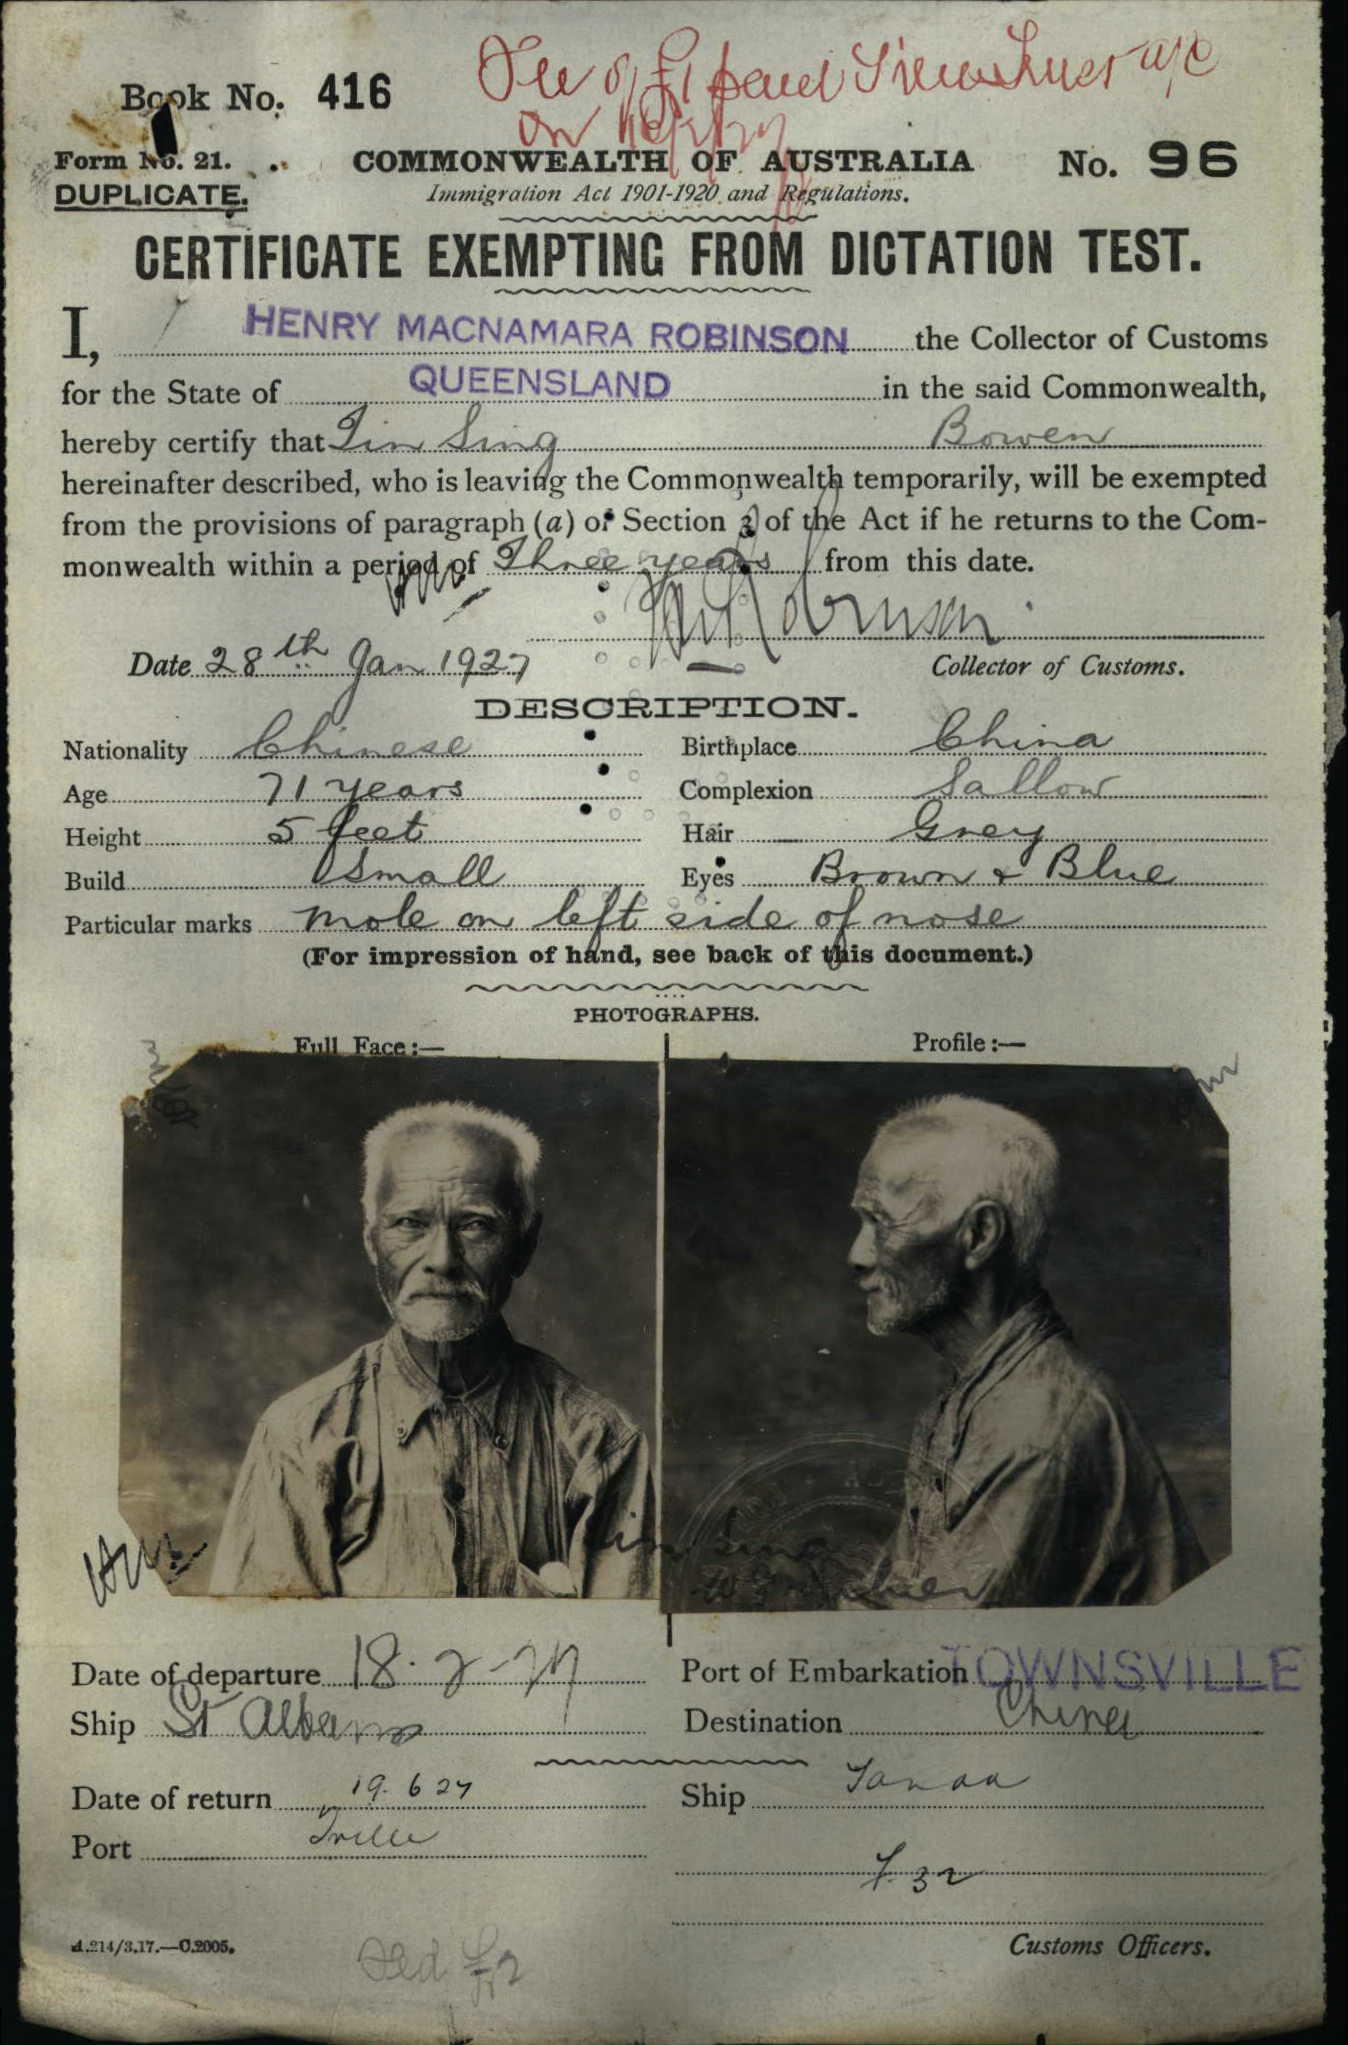 Fee of £1 paid
on
Book No. 416
Form No. 21.
DUPLICATE.
COMMONWEALTH OF AUSTRALIA
No. 96
Immigration Act 1901-1920 and Regulations.
CERTIFICATE EXEMPTING FROM DICTATION TEST.
I, HENRY MACNAMARA ROBINSON the Collector of Customs
for the State of QUEENSLAND in the said Commonwealth,
hereby certify that Tin Sing Bowen
hereinafter described, who is leaving the Commonwealth temporarily, will be exempted
from the provisions of paragraph (a) of Section 3 of the Act if he returns to the Com-
monwealth within a period of Three years from this date.
HM Robinson
Date 28th Jan 1927 Collector of Customs.
DESCRIPTION.
Nationality Chinese Birthplace China
Age 71 years Complexion Sallow
Height 5 feet Hair Grey
Build Small Eyes Brown & Blue
Particular marks mole on left side of nose
(For impression of hand, see back of this document.)
PHOTOGRAPHS.
Full Face:— Profile:—
Date of departure 18-2-27 Port of Embarkation TOWNSVILLE
Ship St Albans Destination China
Date of return 19.6 27 Ship
Port Tville
32
A.214/3.17.—C.2005. Customs Officers.